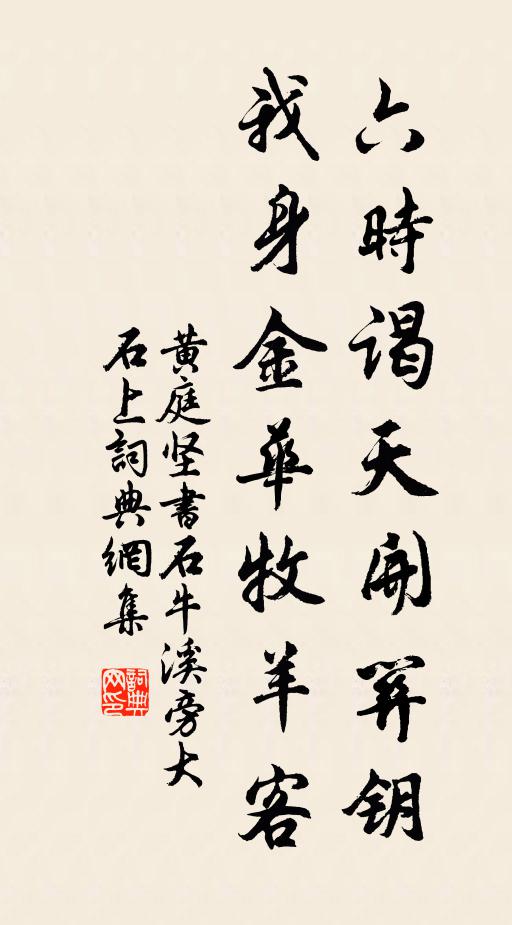 六時謁天開關钥
我身金華牧羊客
黄庭坚書石牛溪旁大
石上詞典網集
詞典
网印